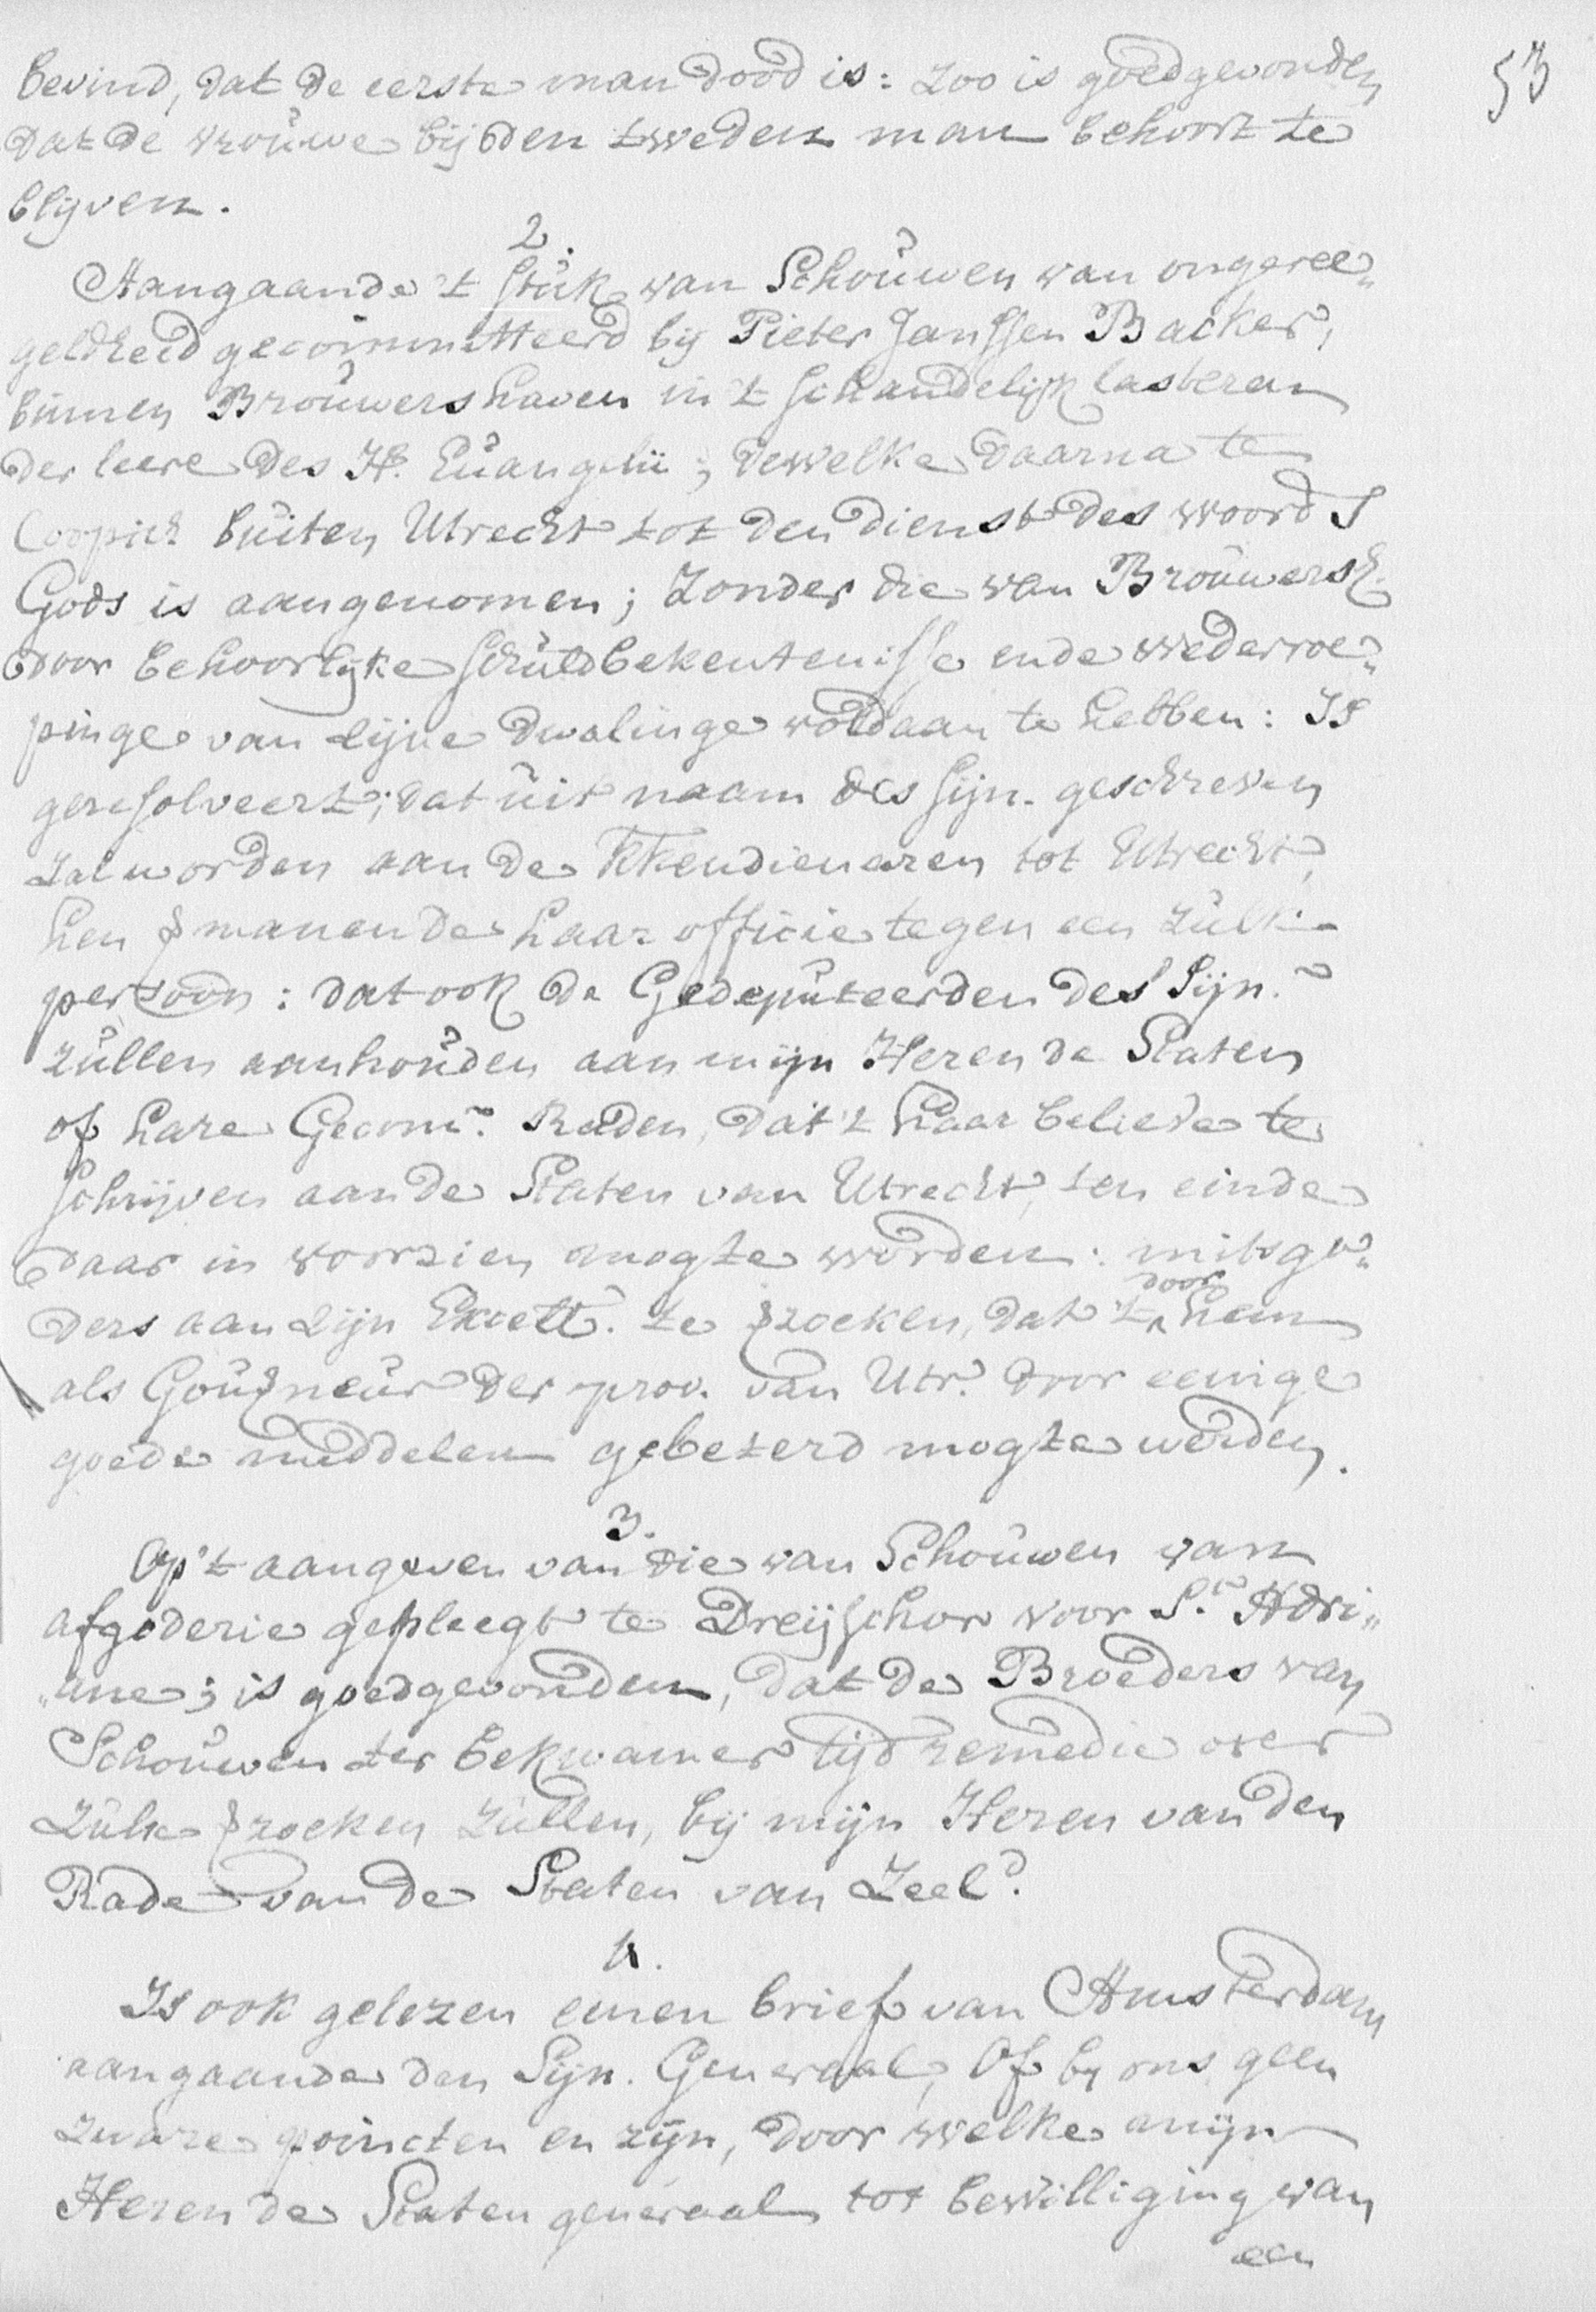 53
bevind, dat de eerste man dood is: Zoo is goedgevonden
dat de vrouwe bij den tweden man behoort te
blijven.
2.
Aangaande 't stuk van Schouwen van ongeree„
geldheid gecommitteerd bij Pieter Janssen Backer,
binnen Brouwershaven in 't schandelijk lasteren
der leere des H. Euangelii; dewelke daarna te
Coopick buiten Utrecht tot den dienst des woords
Gods is aangenomen; Zonder die van Brouwersh.
door behoorlijke schuldbekentenisse ende wederroe„
pinge van zijne dwalinge voldaan te hebben: Is
geresolveert; dat uit naam des Sijn. geschreven
zal worden aan de KKendienaren tot Utrecht,
hen manende haar officie tegen een zulken
persoon: dat ook de Gedeputeerden des Sijn.
zullen aanhouden aan mijn Heren de Staten
of hare Gecom. Raden, dat 't haar believe te
schrijven aan de Staten van Utrecht, ten einde
daar in voorzien mogte worden: mitsga„
ders aan zijn Excell. te zoeken, dat 't door hem
als Gouneur der prov. van Utr. door eenige
goede middelen gebeterd mogte werden.
3.
Op 't aangeven van die van Schouwen van
afgoderie gepleegt te Dreijschor voor St. Adri„
„ane; is goedgevonden, dat de Broeders van
Schouwen ter bekwamer tijd remedie over
zulx zoeken zullen, bij mijn Heren van den
Rade van de Staten van Zeeld.
4.
Is ook gelezen eenen brief van Amsterdam
aangaande den Sijn. Generaal, Of by ons geen
zware poincten en zijn, door welke mijn
Heren de Staten generaal tot bewilliging van
een